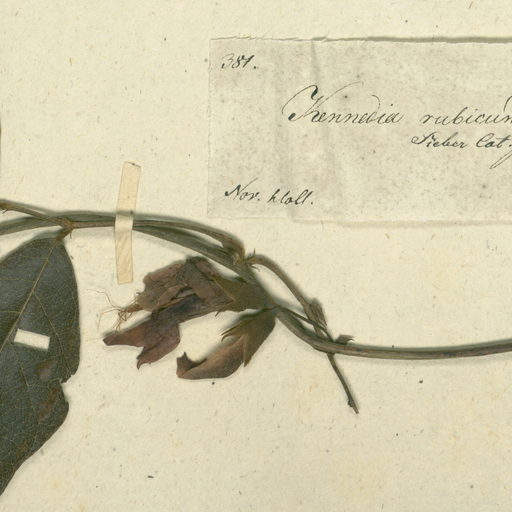 381.
Kennedia rubicun
Sieber Cat.
Nov. Holl.